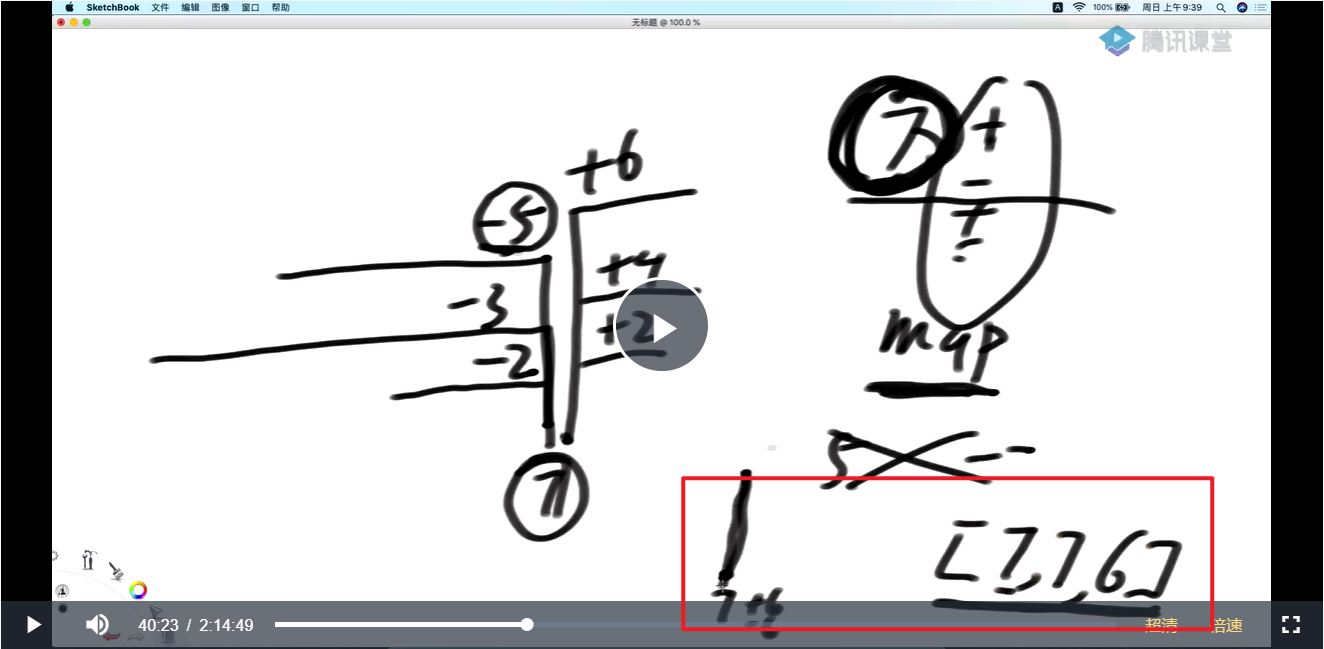 SketchBook 文件 编辑 图像 窗口 帮助 A 100% 周日上午9:39
无标题 @ 100.0 %
腾讯课堂
7 +
-
+6
-5
+4
-3
+2
map
-2
5 --
7
[7,7,6]
7+6
40:23 / 2:14:49 超清 倍速